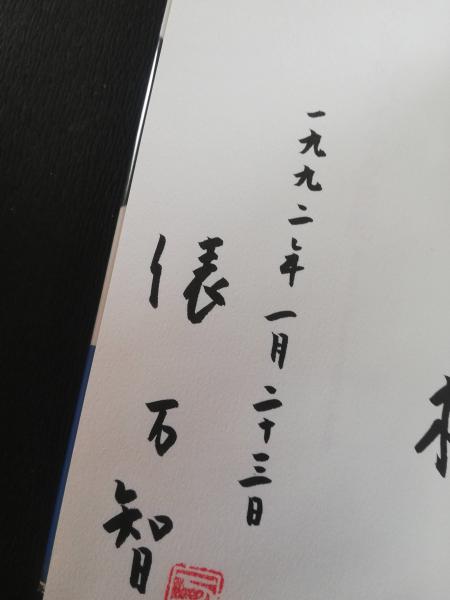 一九九二年一月二十三日
俵万智